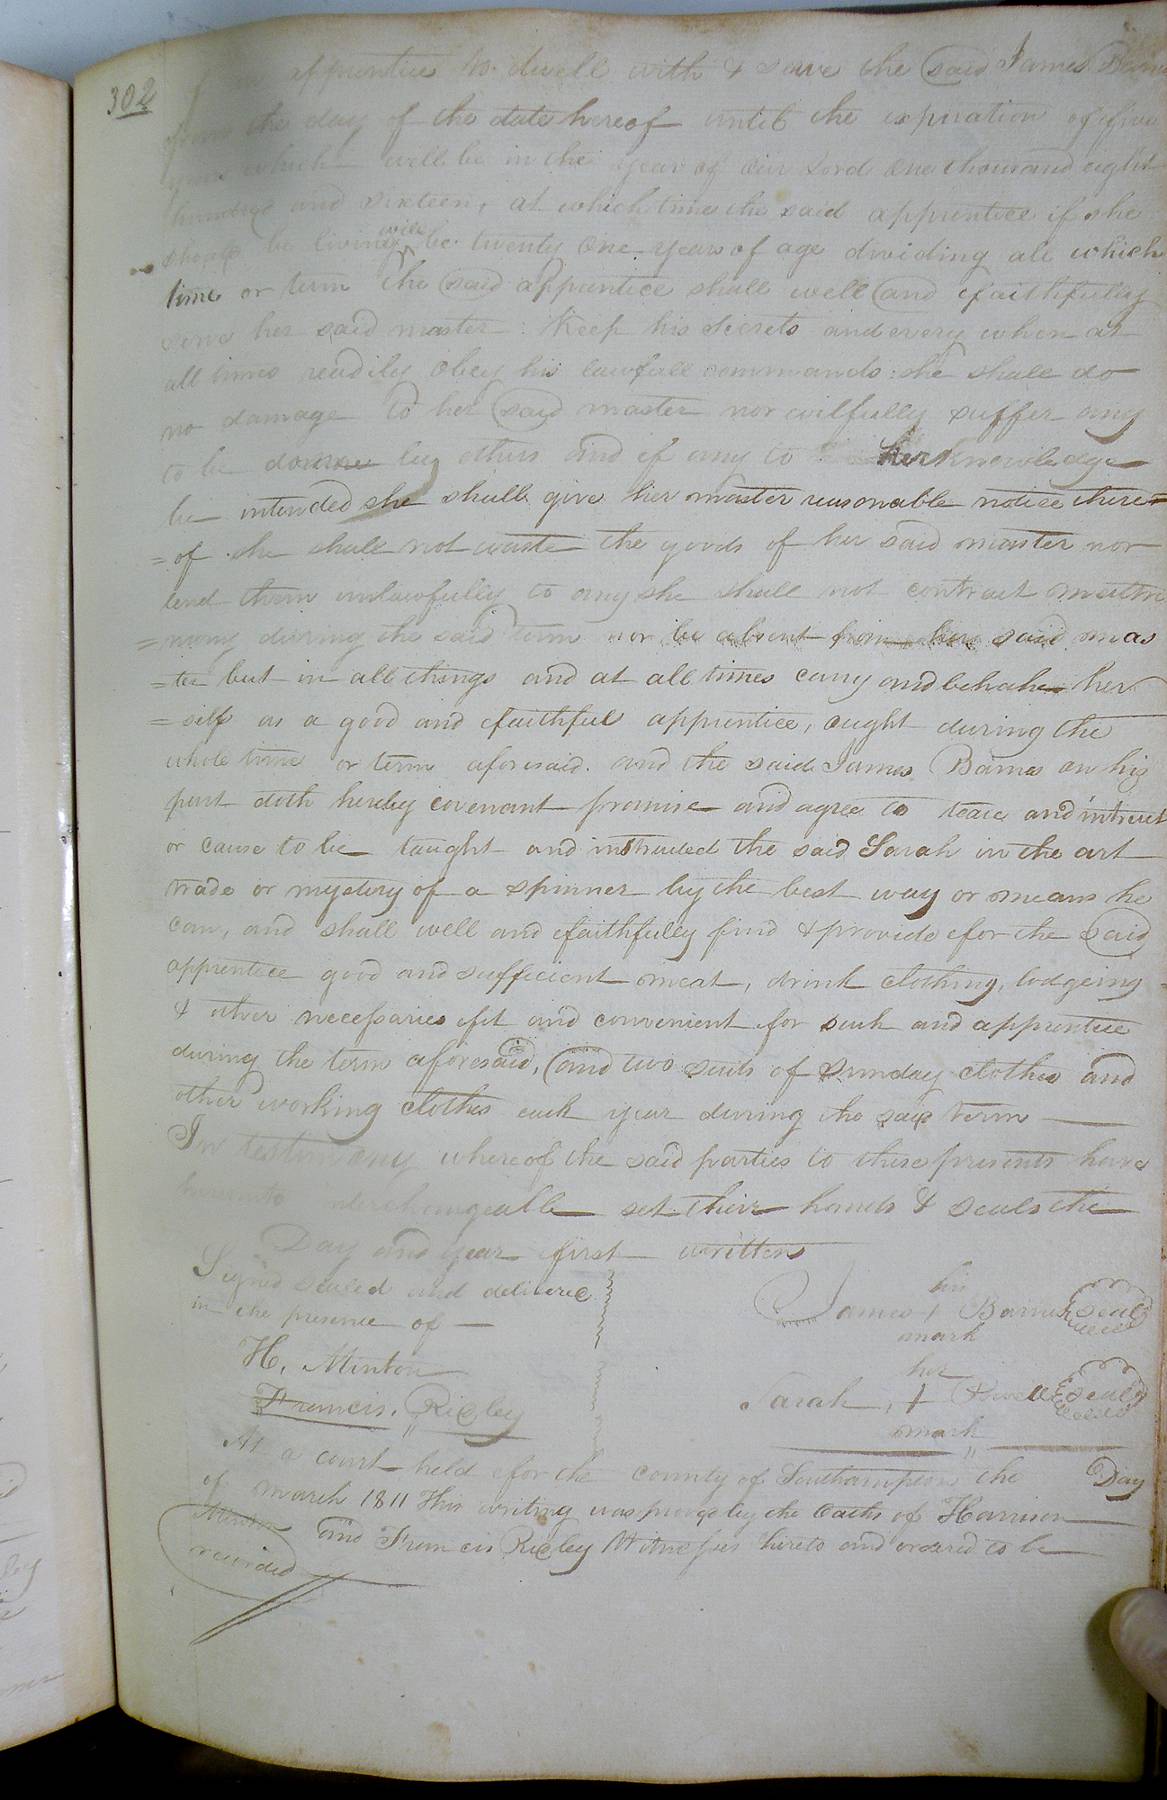 302
apprentice to dwell with & serve the said James Barnes
from the day of the date hereof until the expiration of five
years which will be in the year of our Lord One thousand eight
hundred and sixteen, at which time the said apprentice if she
shall be living will be twenty One years of age dividing all which
time or term the said apprentice shall well and faithfully
serve her said master: Keep his secrets and every when at
all times readily obey his lawfull commands: she shall do
no damage to her said master nor wilfully suffer any
to be donne by others and if any to her knowledge
be intended she shall give her master reasonable notice there=
=of she shall not waste the goods of her said master nor
lend them unlawfully to any she shall not contract matri
=mony during the said term nor be absent from her said mas
=ter but in all things and at all times carry and behave her
=self as a good and faithful apprentice, ought during the
whole time or term aforesaid. and the said James Barnes on his
part doth hereby covenant promise and agree to teace and intruct
or cause to be taught and instructed the said Sarah in the art
trade or mystery of a spinner by the best way or means he
can, and shall well and faithfully find & provide for the said
apprentice good and sufficient meat, drink clothing, lodgeing
& other necessaries fit and convenient for such and apprentice
during the term aforesaid, and two suits of Sunday clothes and
other working clothes each year during the said term
In testimony whereof the said parties to these presents have
hereunto interchangeable set their hands & seals the
Day and year first written
Signed sealed and delivered
in the presence of
H. Minton
Francis. Ridley
his
James + Barnes seal
mark
her
Sarah, + seal
mark
At a court held for the county of Southampton the Day
of march 1811 This writing was proved by the Oaths of Harrison
Minton and Francis Ridley Witnesses hereto and ordered to be
recorded